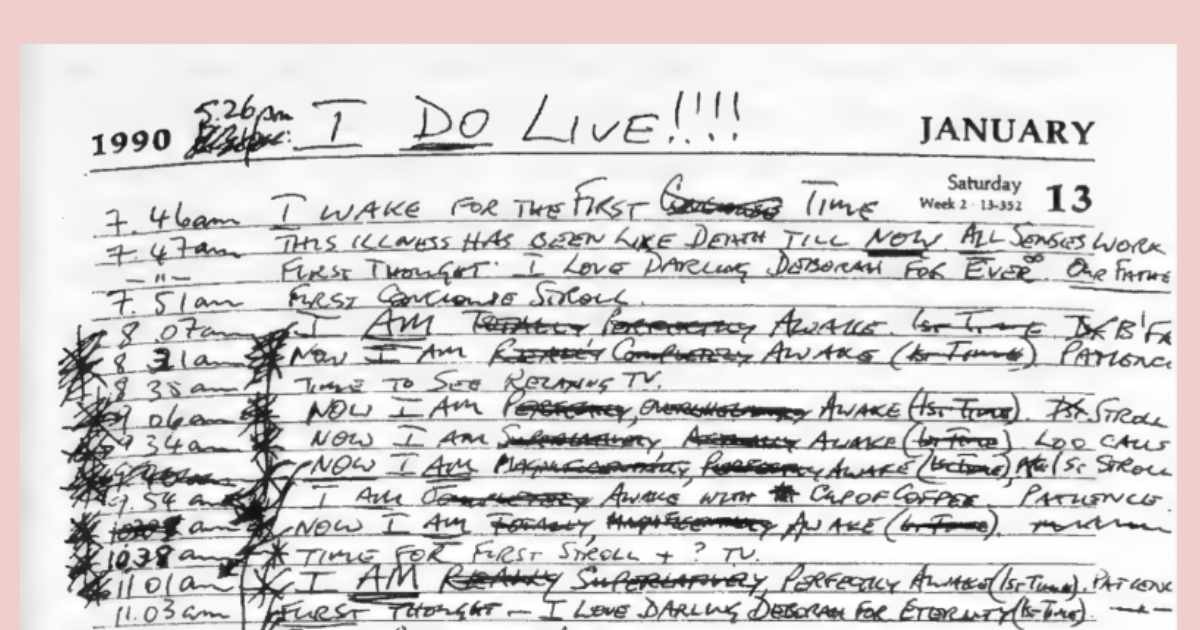 1990 5.26pm I DO LIVE!!!! JANUARY
Saturday
Week 2 · 13-352 13
7.46am I WAKE FOR THE FIRST TIME
7.47am THIS ILLNESS HAS BEEN LIKE DEATH TILL NOW ALL SENSES WORK
-"- FIRST THOUGHT: I LOVE DARLING DEBORAH FOR EVER∞. OUR FATHE
7.51am FIRST STROLL.
8 07am I AM TOTALLY PERFECTLY AWAKE. 1st TIME B'FA
8 31am NOW I AM REALLY COMPLETELY AWAKE (1st TIME) PATIENC
8 38am TIME TO SEE RELAXING TV.
9 06am NOW I AM PERFECTLY, OVERWHELMINGLY AWAKE (1st TIME). 1st STROLL
9 34am NOW I AM SUPERLATIVELY, ACTUALLY AWAKE (1st TIME) LOO CALLS
NOW I AM PERFECTLY AWAKE (1st TIME) 1st STROLL
9.54 am I AM COMPLETELY AWAKE WITH CUP OF COFFEE PATIENCE
am NOW I AM TOTALLY, AWAKE (1st TIME).
10 38am TIME FOR FIRST STROLL + ? TV.
11 01am I AM REALLY SUPERLATIVELY PERFECTLY AWAKE (1st TIME). PATIENC
11.03am FIRST THOUGHT — I LOVE DARLING DEBORAH FOR ETERNITY (1st TIME).